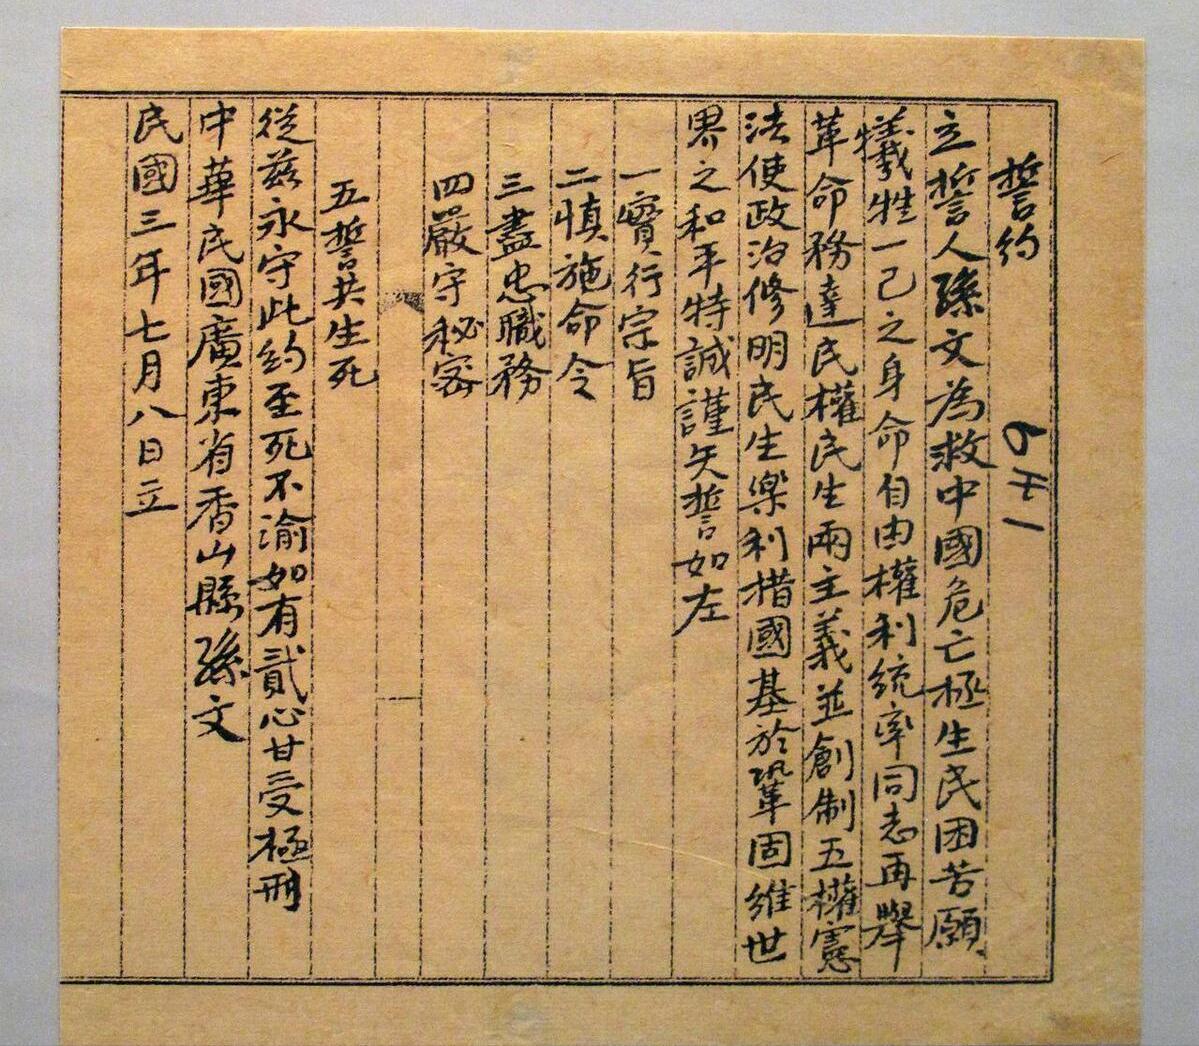 誓約
641
立誓人孫文為救中國危亡極生民困苦願
犧牲一己之身命自由權利統率同志再舉
革命務達民權民生兩主義並創制五權憲
法使政治修明民生樂利措國基於鞏固維世
界之和平特誠謹矢誓如左
一實行宗旨
二慎施命令
三盡忠職務
四嚴守秘密
五誓共生死
從茲永守此約至死不渝如有貳心甘受極刑
中華民國廣東省香山縣孫文
民國三年七月八日立